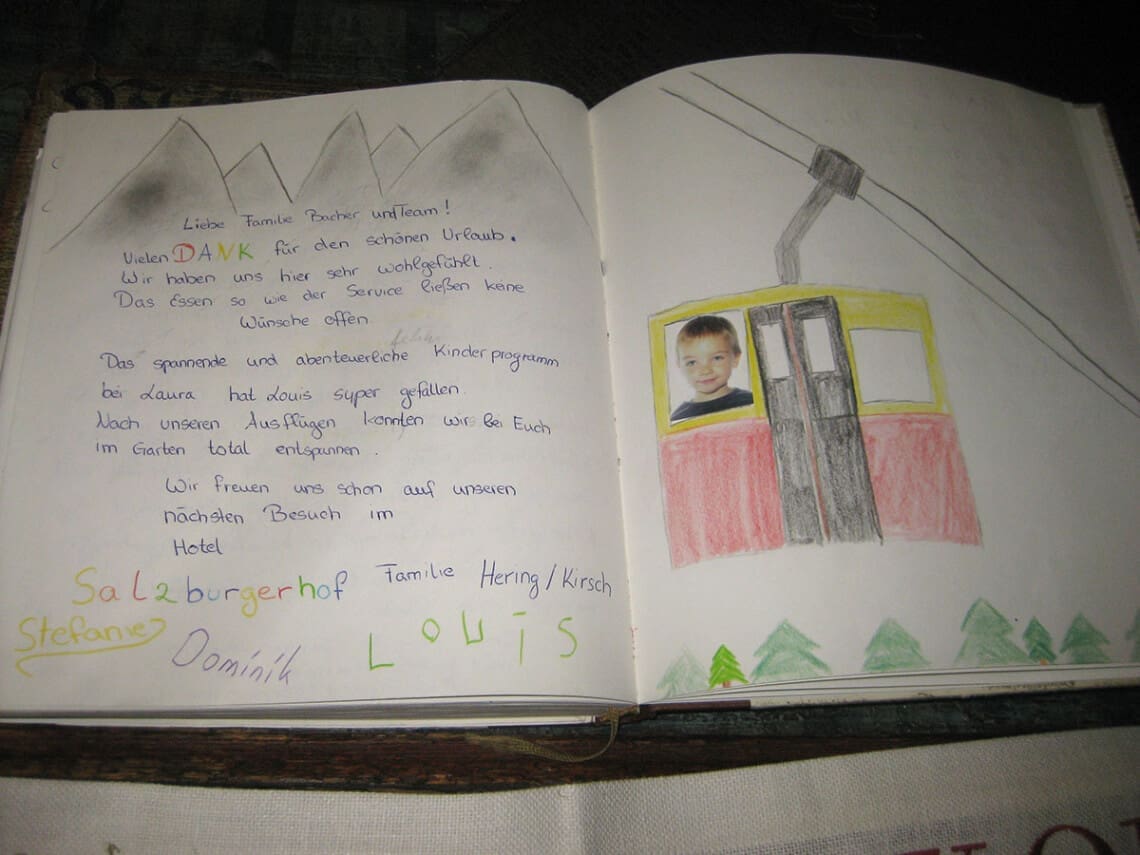 Liebe Familie Bacher und Team!
Vielen DANK für den schönen Urlaub.
Wir haben uns hier sehr wohlgefühlt.
Das Essen so wie der Service ließen keine
Wünsche offen
Das spannende und abenteuerliche Kinderprogramm
bei Laura hat Louis super gefallen.
Nach unseren Ausflügen konnten wir bei Euch
im Garten total entspannen.
Wir freuen uns schon auf unseren
nächsten Besuch im
Hotel
Salzburgerhof Familie Hering/Kirsch
Stefanie Dominik Louis